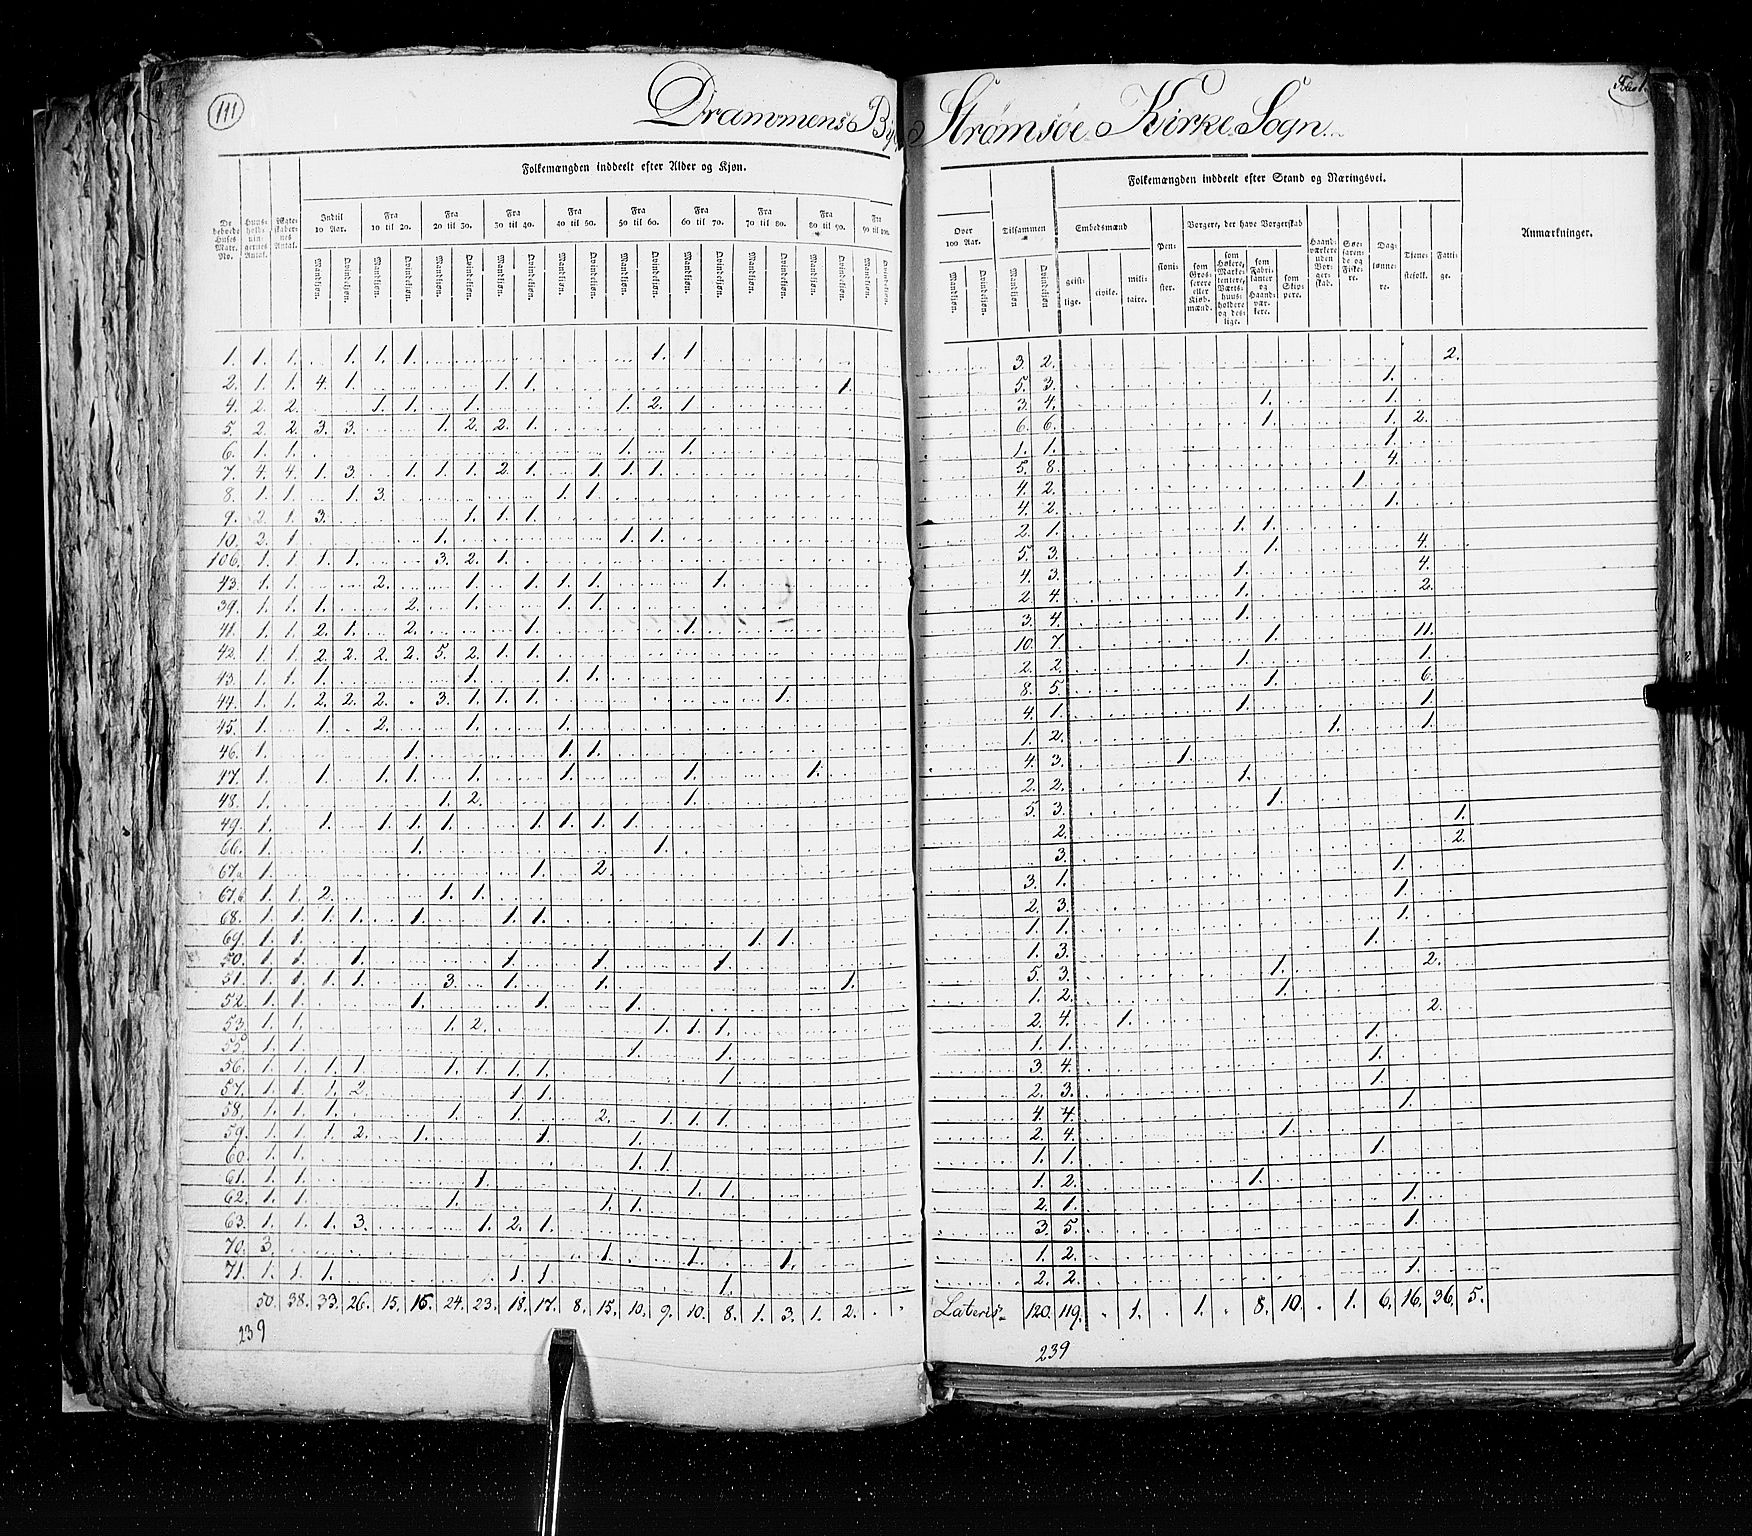 111
Drammens By Strømsøe Kirke Sogn.
Folkemængden inddeelt efter Alder og Kjøn.
Folkemængden inddeelt efter Stand og Næringsvei.
De bebvede Huses Matr. No.
Huus-holdningernes Antal.
Indtil 10 Aar.
Fra 10 til 20.
Fra 20 til 30.
Fra 30 til 40.
Fra 40 til 50.
Fra 50 til 60.
Fra 60 til 70.
Fra 70 til 80.
Fra 80 til 90.
Fra 90 til 100.
Over 100 Aar.
Tilsammen
Mandkjøn. Qvindekjøn.
Embedsmænd
geistlige. civile. militaire.
Pensionister.
Borgere, der have Borgerskab
som Grosserere eller Kjøbmænd.
som Høkere, Marketentere, Værtshuusholdere og deslige.
som Fabrikanter og Haandværkere.
som Skippere.
Haandværkere uden Borgerskab.
Søefarende og Fiskere.
Daglønnere.
Tjenestefolk.
Fattige.
Anmærkninger.
1. 1. 1. 1. 1. 1. 1. 1. 3. 2. 2.
2. 1. 1. 4. 1. 1. 1. 1. 5. 3. 1.
4. 2. 2. 1. 1. 1. 1. 2. 1. 3. 4. 1. 1.
5. 2. 2. 3. 3. 1. 2. 2. 1. 6. 6. 1. 1. 2.
6. 1. 1. 1. 1. 1. 1. 1.
7. 4. 4. 1. 3. 1. 1. 1. 2. 1. 1. 1. 1. 5. 8. 4.
8. 1. 1. 1. 3. 1. 1. 4. 2. 1
9. 2. 1. 3. 1. 1. 1. 4. 2. 1.
10. 2. 1. 1. 1. 1. 2. 1. 1. 1.
106. 1. 1. 1. 1. 3. 2. 1. 5. 3. 1. 4.
43. 1. 1. 2. 1. 1. 1. 1. 1. 4. 3. 1. 4.
39. 1. 1. 1. 2. 1. 1. 1. 2. 4. 1. 2.
41. 1. 1. 2. 1. 2. 1. 1. 3. 4. 1.
42. 1. 1. 2. 2. 2. 2. 5. 2. 1. 1. 10. 7. 1. 11.
43. 1. 1. 1. 1. 1. 1. 2. 2. 1. 1.
44. 1. 1. 2. 2. 2. 3. 1. 1. 1. 1. 8. 5. 1. 6.
45. 1. 1. 2. 1. 1. 4. 1. 1. 1.
46. 1. 1. 1. 1. 1. 2. 1. 1.
47. 1. 1. 1. 1. 1. 1. 1. 1. 4. 3. 1.
48. 1. 1. 2. 1. 2. 2. 1.
49. 1. 1. 1. 1. 1. 1. 1. 1. 1. 5. 3. 1.
66. 1. 1. 1. 2. 1.
67a 1. 1. 2 3. 2.
67b 1. 1. 2. 1. 1. 3. 1. 1.
68. 1. 1. 1. 1. 1. 1. 1. 2. 3. 1.
69. 1. 1. 1. 1. 1. 1. 1.
50. 1. 1. 1. 1. 1. 1. 1. 3. 1.
51. 1. 1. 1. 1. 3. 1. 1. 1. 5. 3. 1. 2.
52. 1. 1. 1. 1. 1. 1. 2. 1.
53. 1. 1. 1. 2. 1. 1. 1. 2. 4. 1. 2.
55. 1. 1. 1. 1. 1. 1. 1.
56. 1. 1. 1. 1. 1. 1. 1. 1. 1 3. 4. 1.
57. 1. 1. 1. 2. 1. 1. 2. 3. 1.
58. 1. 1. 1. 1. 1. 2. 1. 1. 1. 4. 4. 1.
59. 1. 1. 1. 2. 1. 1. 1. 2. 4. 1.
60. 1. 1. 1. 1. 1. 1. 1.
61. 1. 1. 1. 1. 1. 1. 2. 1.
62. 1. 1. 1. 1. 1. 2. 1. 1.
63. 1. 1. 1. 3. 1. 2. 1. 3. 5. 1.
70. 3. 1. 1. 1. 1. 2.
71. 1. 1. 1. 1. 1 1. 2. 2. 1.
50. 38. 33. 26. 15. 16. 24. 23. 18. 17. 8. 15. 10. 9. 10. 8. 1. 3. 1. 2. Lateris 120. 119. 1. 1. 8. 10. 1. 6. 16. 36. 5.
239
239